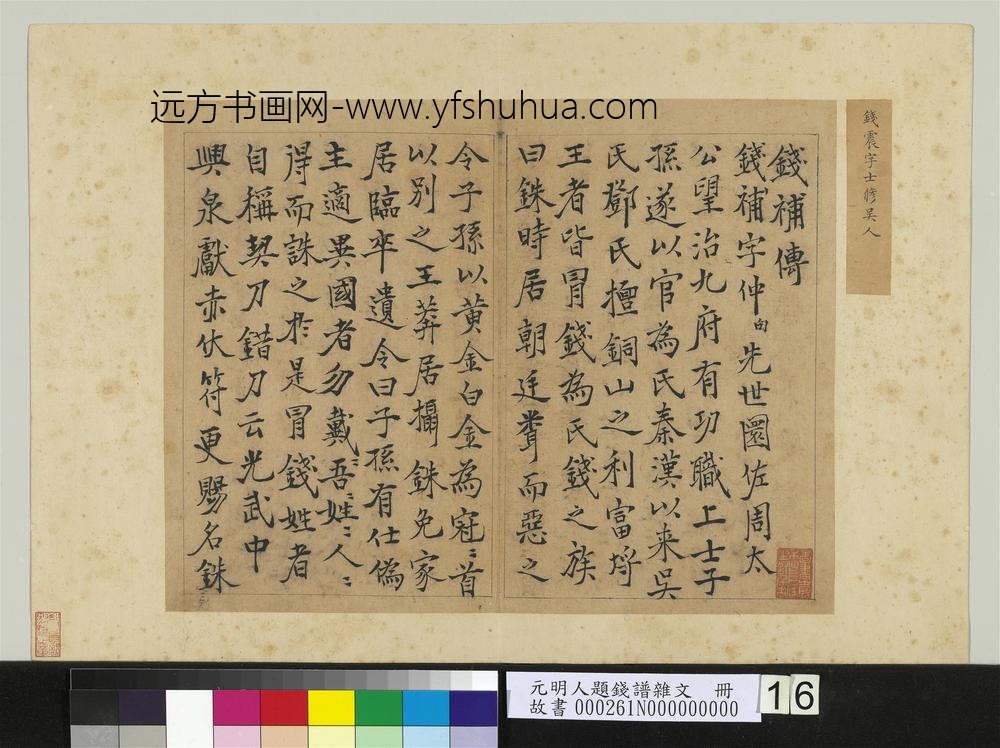 远方书画网-www.yfshuhua.com
錢震字士修吴人
錢補傳
錢補字仲由先世圜佐周太
公望治九府有功職上士子
孫遂以官為氏秦漢以来吴
氏鄧氏擅銅山之利富埒
王者皆冐錢為氏錢之族
曰銖時居朝廷聾而惡之
令子孫以黄金白金為冠〻首
以别之王莽居攝銖免家
居臨卒遺令曰子孫有仕偽
主適異國者勿戴吾〻姓〻人〻
得而誅之扵是冐錢姓者
自稱契刀錯刀云光武中
興泉獻赤伏符更賜名銖
元明人題錢譜雜文 冊
故書 000261N000000000
16